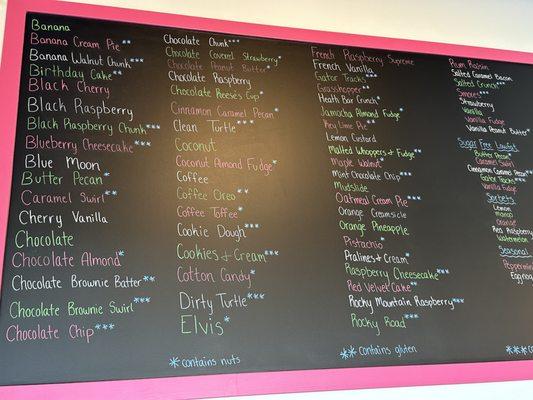 Banana
Banana Cream Pie **
Banana Walnut Chunk ***
Birthday Cake **
Black Cherry
Black Raspberry
Black Raspberry Chunk ***
Blueberry Cheesecake ***
Blue Moon
Butter Pecan *
Caramel Swirl **
Cherry Vanilla
Chocolate
Chocolate Almond *
Chocolate Brownie Batter **
Chocolate Brownie Swirl ***
Chocolate Chip ***
Chocolate Chunk ***
Chocolate Covered Strawberry *
Chocolate Peanut Butter *
Chocolate Raspberry
Chocolate Reese's Cup *
Cinnamon Caramel Pecan *
Clean Turtle ***
Coconut
Coconut Almond Fudge *
Coffee
Coffee Oreo **
Coffee Toffee *
Cookie Dough ***
Cookies & Cream ***
Cotton Candy *
Dirty Turtle ***
Elvis *
* contains nuts
French Raspberry Supreme
French Vanilla
Gator Tracks ***
Grasshopper **
Heath Bar Crunch *
Jamocha Almond Fudge *
Key Lime Pie **
Lemon Custard
Malted Whoppers & Fudge *
Maple Walnut *
Mint Chocolate Chip ***
Mudslide
Oatmeal Cream Pie ***
Orange Creamsicle
Orange Pineapple
Pistachio *
Pralines & Cream *
Raspberry Cheesecake ***
Red Velvet Cake **
Rocky Mountain Raspberry ***
Rocky Road ***
** contains gluten
Plum Raisin
Salted Caramel Bacon
Salted Crunch **
Smores ***
Strawberry
Vanilla
Vanilla Fudge
Vanilla Peanut Butter *
Sugar Free Lowfat
Butter Pecan *
Caramel Swirl
Cinnamon Caramel Pecan **
Gator Tracks ***
Vanilla Fudge
Sorbets
Lemon
Mango
Orange
Red Raspberry
Watermelon
Seasonal
Peppermint
Eggnog
*** co